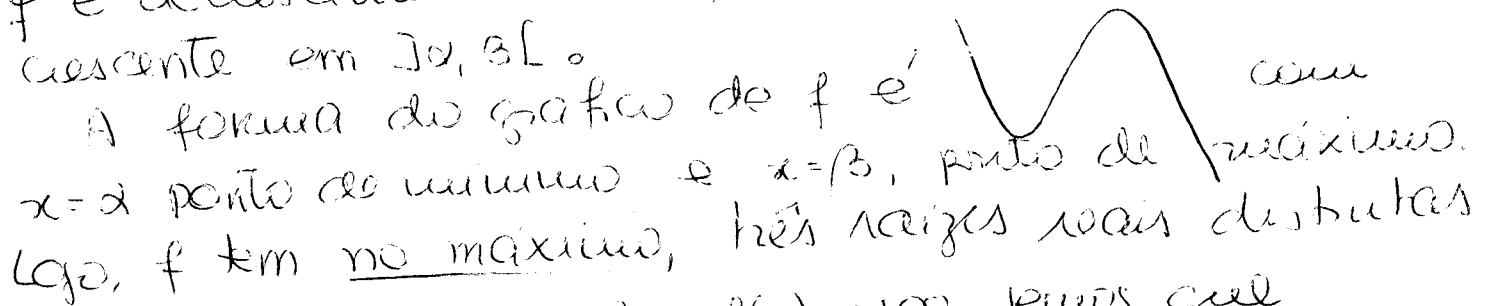 f é
crescente em ]α, β[.
A forma do gráfico de f é com
x=α ponto de mínimo e x=β, ponto de máximo.
Logo, f tem no máximo, três raízes reais distintas
temos que